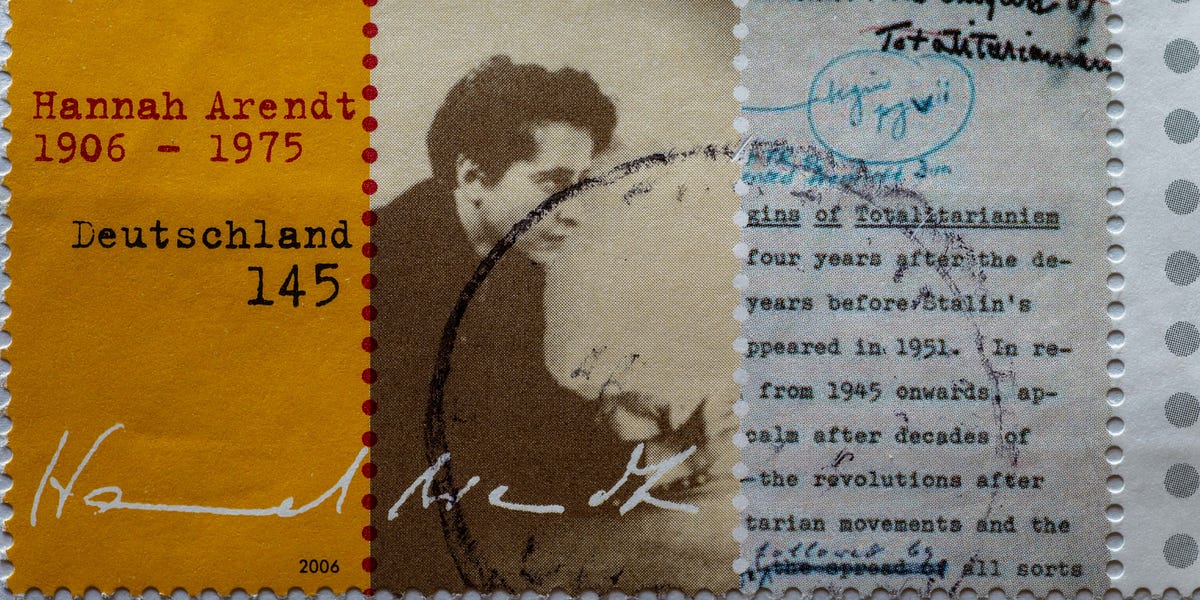 Hannah Arendt
1906 - 1975
Deutschland
145
Hannah Arendt
2006
Totalitarianism
begin
pg vii
gins of Totalitarianism
four years after the de-
years before Stalin's
ppeared in 1951. In re-
from 1945 onwards, ap-
calm after decades of
-the revolutions after
tarian movements and the
followed by
the spread of all sorts